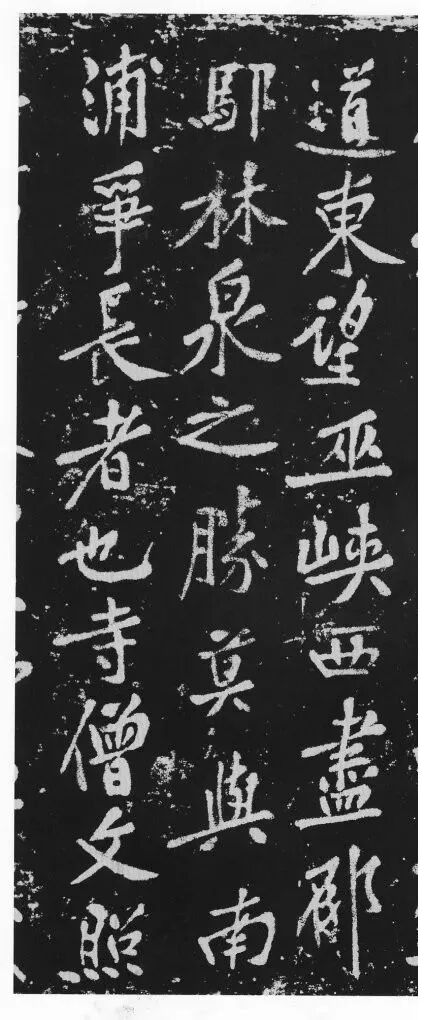 道東望巫峽西盡郁
鄢林泉之勝莫與南
浦爭長者也寺僧文照